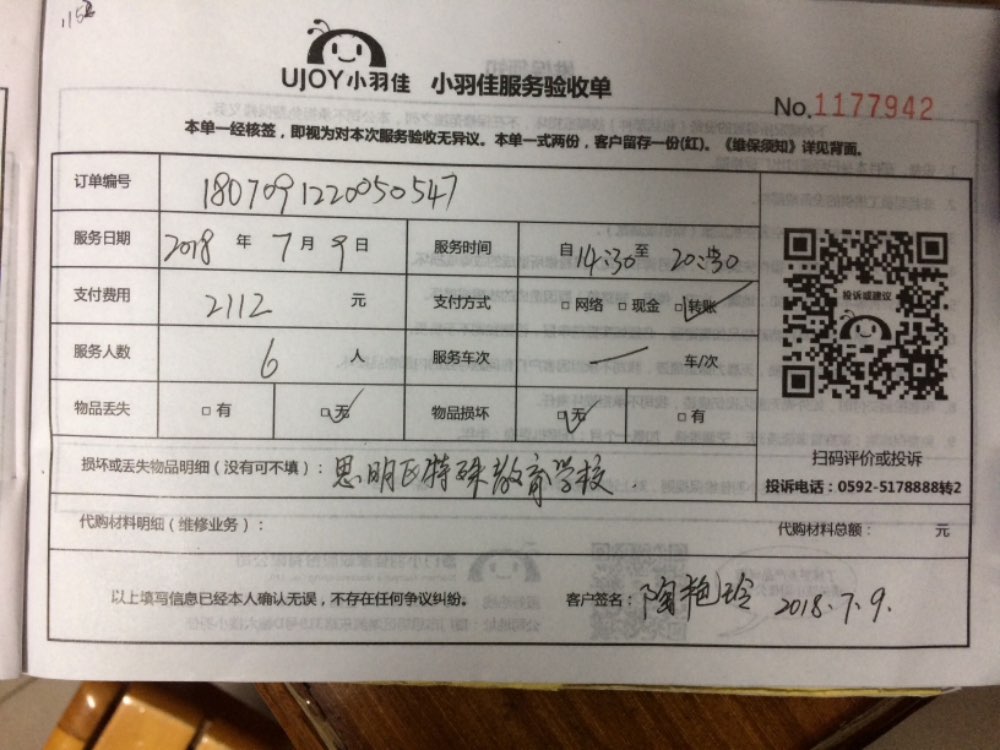 1152
UJOY小羽佳 小羽佳服务验收单
No.1177942
本单一经核签，即视为对本次服务验收无异议。本单一式两份，客户留存一份(红)。《维保须知》详见背面。
订单编号 1807091220050547
服务日期 2018 年 7 月 9 日 服务时间 自14:30至 20:30
支付费用 2112 元 支付方式 □ 网络 □ 现金 □ 转账
投诉或建议
服务人数 6 人 服务车次 — 车/次
物品丢失 □ 有 □ 无 物品损坏 □ 无 □ 有
扫码评价或投诉
损坏或丢失物品明细（没有可不填）：思明区特殊教育学校
投诉电话：0592-5178888转2
代购材料明细（维修业务）： 代购材料总额： 元
以上填写信息已经本人确认无误，不存在任何争议纠纷。 客户签名：陶艳玲 2018.7.9.